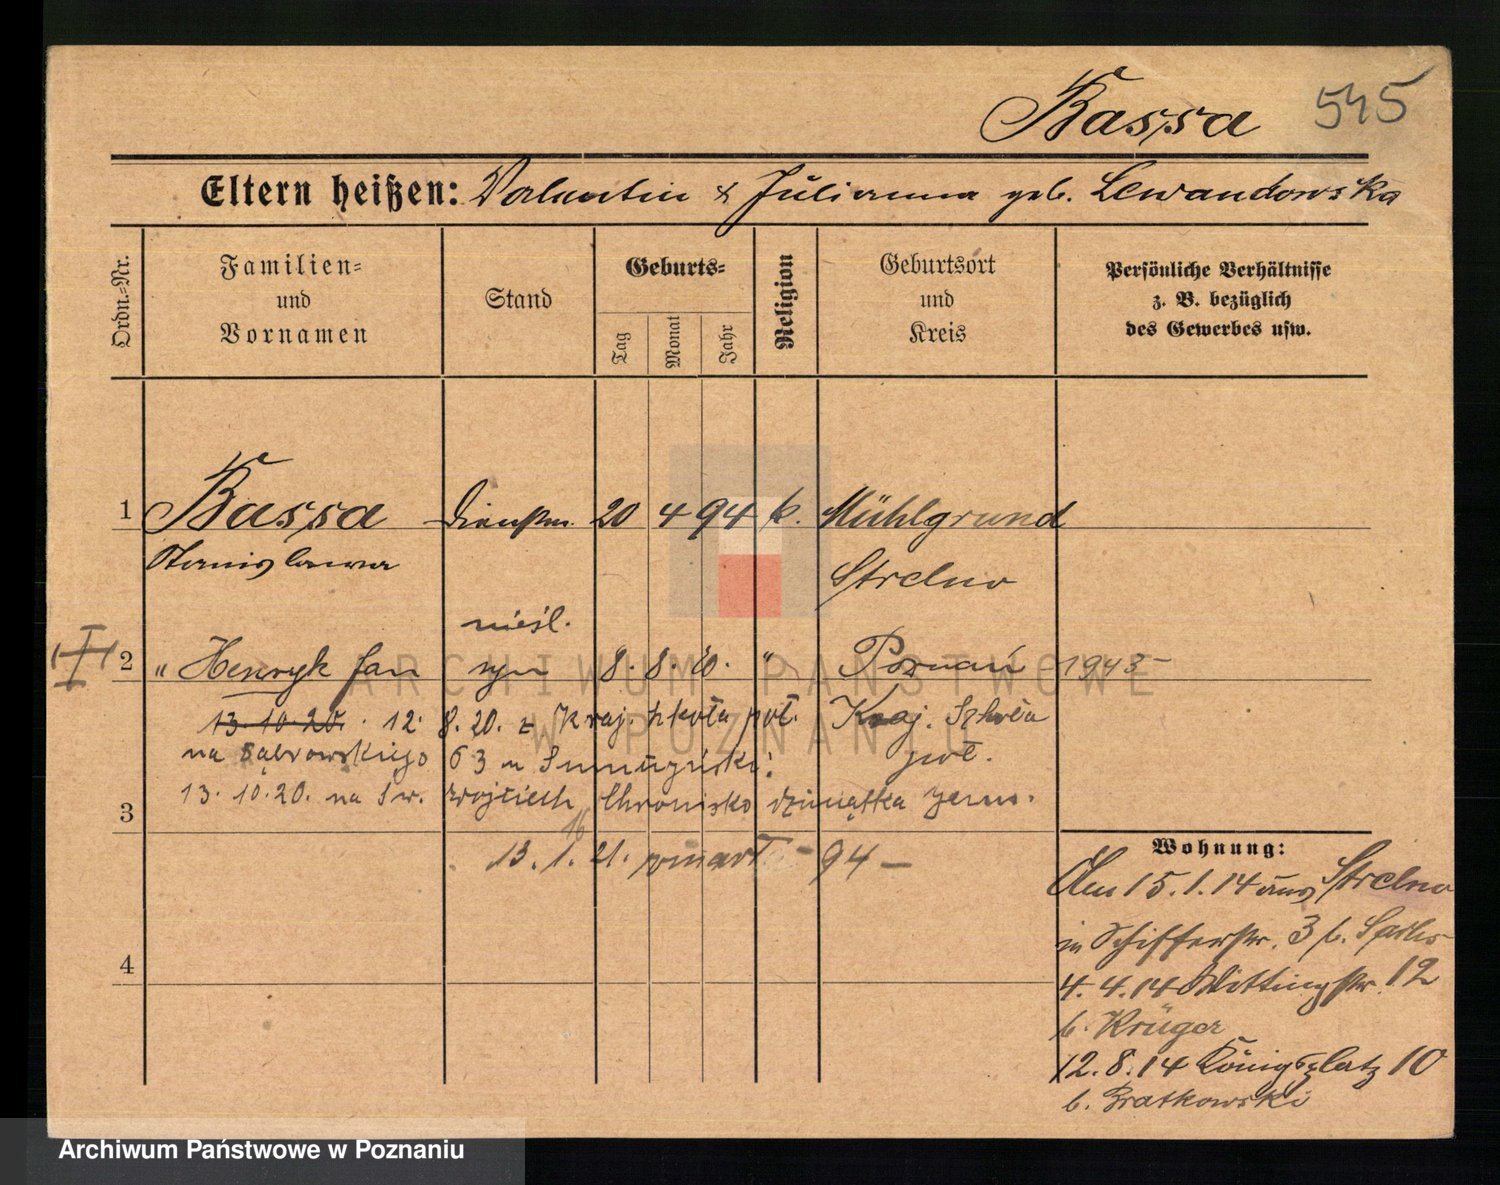 Bassa 545
Eltern heißen: Valentin & Julianna geb. Lewandowska
Ordn.=Nr.
Familien=
und
Vornamen
Stand
Geburts=
Tag
Monat
Jahr
Religion
Geburtsort
und
Kreis
Persönliche Verhältnisse
z. B. bezüglich
des Gewerbes usw.
1 Bassa Dienstm. 20 4 94 k. Mühlgrund
Stanislawa Strelno
nieśl.
2 " Henryk Jan syn 8. 8. 20. " Poznań 1943
13.10.20. 12. 8.20. z Kraj. szkoła poł. Kraj. Szkoła
na Dąbrowskiego 63 poł.
3 13.10.20. na Św. Wojciech
13. 1. 21. zmarł - 94 -
16
4
Wohnung:
Am 15.1.14 aus Strelno
in Schifferstr. 3 b.
4.4.14 Wittingstr. 12
b. Krüger
12.8.14 Königsplatz 10
b. Bratkowski
ARCHIWUM PAŃSTWOWE
W POZNANIU
Archiwum Państwowe w Poznaniu